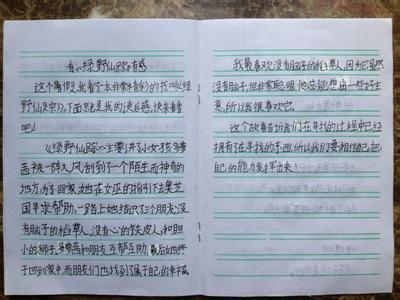 有《绿野仙踪》有感
这个暑假,我看了一本非常精彩的书叫《绿
野仙踪》,下面就是我的读后感,快来看看
吧!
《绿野仙踪》主要讲了小女孩多萝
茜被一阵大风,刮到了一个陌生而神奇的
地方,为了回家她在女巫的指引下去奥芝
国寻求帮助,一路上她结识了三个朋友:没
有脑子的稻草人,没有心的铁皮人,和胆
小的狮子,多萝茜和朋友互帮互助,最后她终
于回到家中,而朋友们也找到了属于自己的幸福
我最喜欢没有脑子的稻草人,因为它虽然
没有脑子,但非常聪明,他总能想出一些好主
意,所以我很喜欢它。
这个故事告诉我们在寻找的过程中已经
拥有了在寻找的东西,所以我们要相信自己,把
自己的能力发挥出来!